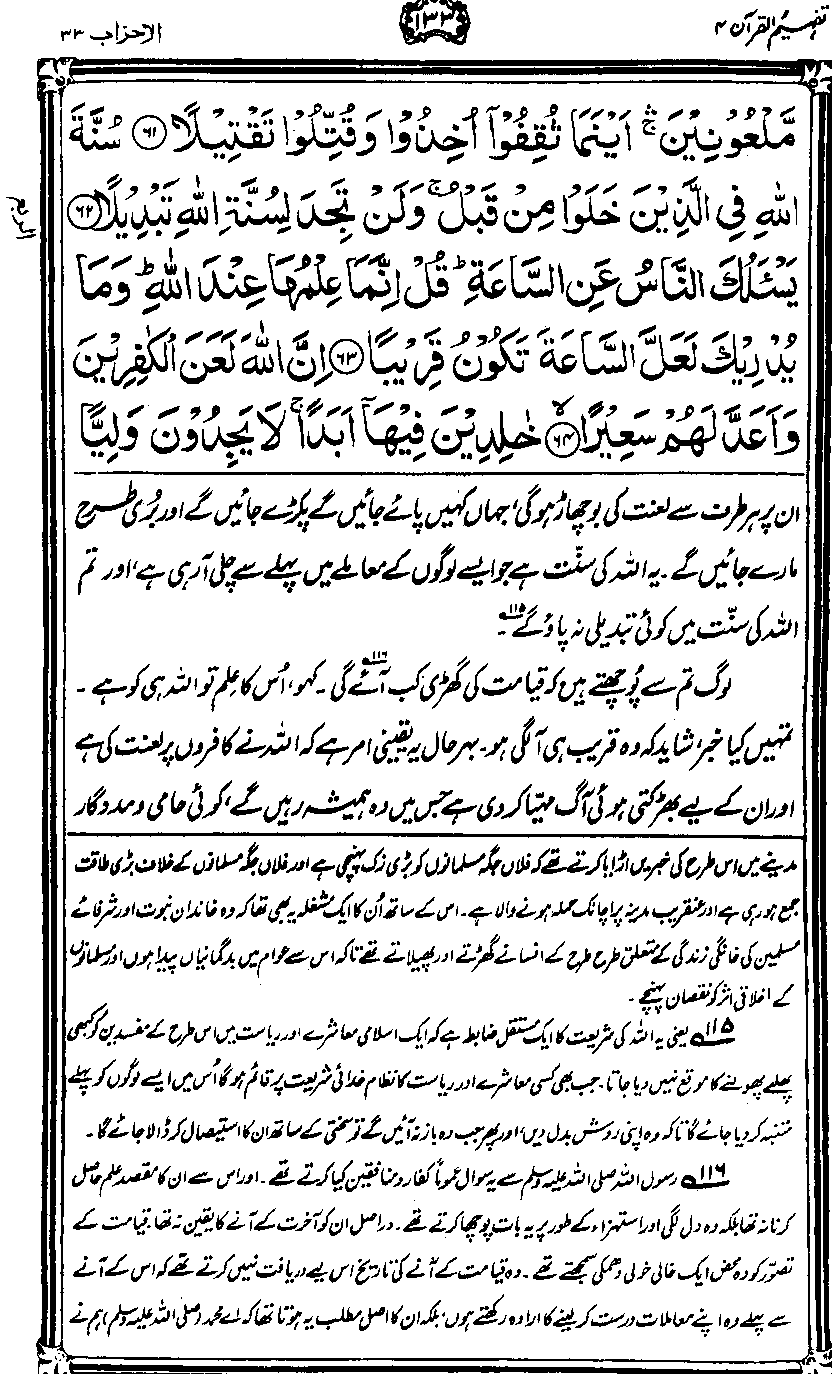 تفہیم القرآن ۴
۱۳۳
الاحزاب ۳۳
مَّلْعُوْنِیْنَ ۛۚ اَیْنَمَا ثُقِفُوْۤا اُخِذُوْا وَ قُتِّلُوْا تَقْتِیْلًا ﴿۶۱﴾ سُنَّةَ
اللّٰهِ فِی الَّذِیْنَ خَلَوْا مِنْ قَبْلُ ۚ وَ لَنْ تَجِدَ لِسُنَّةِ اللّٰهِ تَبْدِیْلًا ﴿۶۲﴾
الربع
یَسْئَلُكَ النَّاسُ عَنِ السَّاعَةِ ؕ قُلْ اِنَّمَا عِلْمُهَا عِنْدَ اللّٰهِ ؕ وَ مَا
یُدْرِیْكَ لَعَلَّ السَّاعَةَ تَكُوْنُ قَرِیْبًا ﴿۶۳﴾ اِنَّ اللّٰهَ لَعَنَ الْكٰفِرِیْنَ
وَ اَعَدَّ لَهُمْ سَعِیْرًا ﴿۶۴﴾ۙ خٰلِدِیْنَ فِیْهَاۤ اَبَدًا ۚ لَا یَجِدُوْنَ وَلِیًّا
ان پر ہر طرف سے لعنت کی بوچھاڑ ہوگی، جہاں کہیں پائے جائیں گے پکڑے جائیں گے اور بُری طرح
مارے جائیں گے۔ یہ اللہ کی سنّت ہے جو ایسے لوگوں کے معاملے میں پہلے سے چلی آرہی ہے، اور تم
اللہ کی سنّت میں کوئی تبدیلی نہ پاؤ گے۱۱۵۔
لوگ تم سے پُوچھتے ہیں کہ قیامت کی گھڑی کب آئے گی۱۱۶۔ کہو، اُس کا علم تو اللہ ہی کو ہے۔
تمہیں کیا خبر، شاید کہ وہ قریب ہی آ لگی ہو۔ بہرحال یہ یقینی امر ہے کہ اللہ نے کافروں پر لعنت کی ہے
اور ان کے لیے بھڑکتی ہوئی آگ مہیّا کر دی ہے جس میں وہ ہمیشہ رہیں گے، کوئی حامی و مددگار
مدینے میں اس طرح کی خبریں اڑایا کرتے تھے کہ فلاں جگہ مسلمانوں کو بڑی زک پہنچی ہے اور فلاں جگہ مسلمانوں کے خلاف بڑی طاقت
جمع ہو رہی ہے اور عنقریب مدینہ پر اچانک حملہ ہونے والا ہے۔ اس کے ساتھ اُن کا ایک مشغلہ یہ بھی تھا کہ وہ خاندان نبوت اور شرفائے
مسلمین کی خانگی زندگی کے متعلق طرح طرح کے افسانے گھڑتے اور پھیلاتے تھے تاکہ اس سے عوام میں بدگمانیاں پیدا ہوں اور مسلمانوں
کے اخلاقی اثر کو نقصان پہنچے۔
۱۱۵ یعنی یہ اللہ کی شریعت کا ایک مستقل ضابطہ ہے کہ ایک اسلامی معاشرے اور ریاست میں اس طرح کے مفسدین کو کبھی
پھلنے پھولنے کا موقع نہیں دیا جاتا۔ جب بھی کسی معاشرے اور ریاست کا نظام خدائی شریعت پر قائم ہوگا اُس میں ایسے لوگوں کو پہلے
متنبہ کر دیا جائے گا تاکہ وہ اپنی روش بدل دیں، اور پھر جب وہ باز نہ آئیں گے تو سختی کے ساتھ ان کا استیصال کر ڈالا جائے گا۔
۱۱۶ رسول اللہ صلی اللہ علیہ وسلم سے یہ سوال عموماً کفار و منافقین کیا کرتے تھے۔ اور اس سے ان کا مقصد علم حاصل
کرنا نہ تھا بلکہ وہ دل لگی اور استہزاء کے طور پر یہ بات پوچھا کرتے تھے۔ دراصل ان کو آخرت کے آنے کا یقین نہ تھا، قیامت کے
تصوّر کو وہ محض ایک خالی خولی دھمکی سمجھتے تھے۔ وہ قیامت کے آنے کی تاریخ اس لیے دریافت نہیں کرتے تھے کہ اس کے آنے
سے پہلے وہ اپنے معاملات درست کر لینے کا ارادہ رکھتے ہوں، بلکہ ان کا اصل مطلب یہ ہوتا تھا کہ اے محمد (صلی اللہ علیہ وسلم) ہم نے